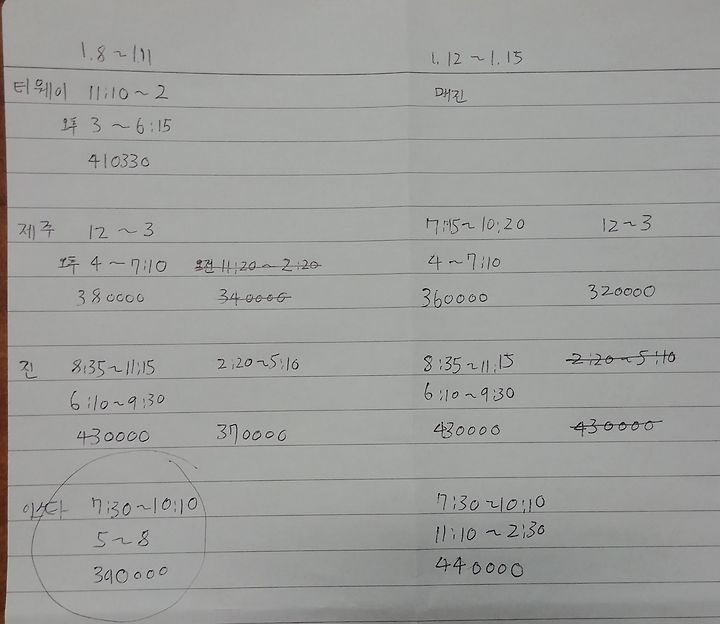 1.8~1.11 1.12~1.15
티웨이 11:10~2 매진
오후 3~6:15
410330
제주 12~3 7:15~10:20 12~3
오후 4~7:10 오전 11:20~2:20 4~7:10
380000 340000 360000 320000
진 8:35~11:15 2:20~5:10 8:35~11:15 2:20~5:10
6:10~9:30 6:10~9:30
430000 370000 430000 430000
이스타 7:30~10:10 7:30~10:10
5~8 11:10~2:30
390000 440000